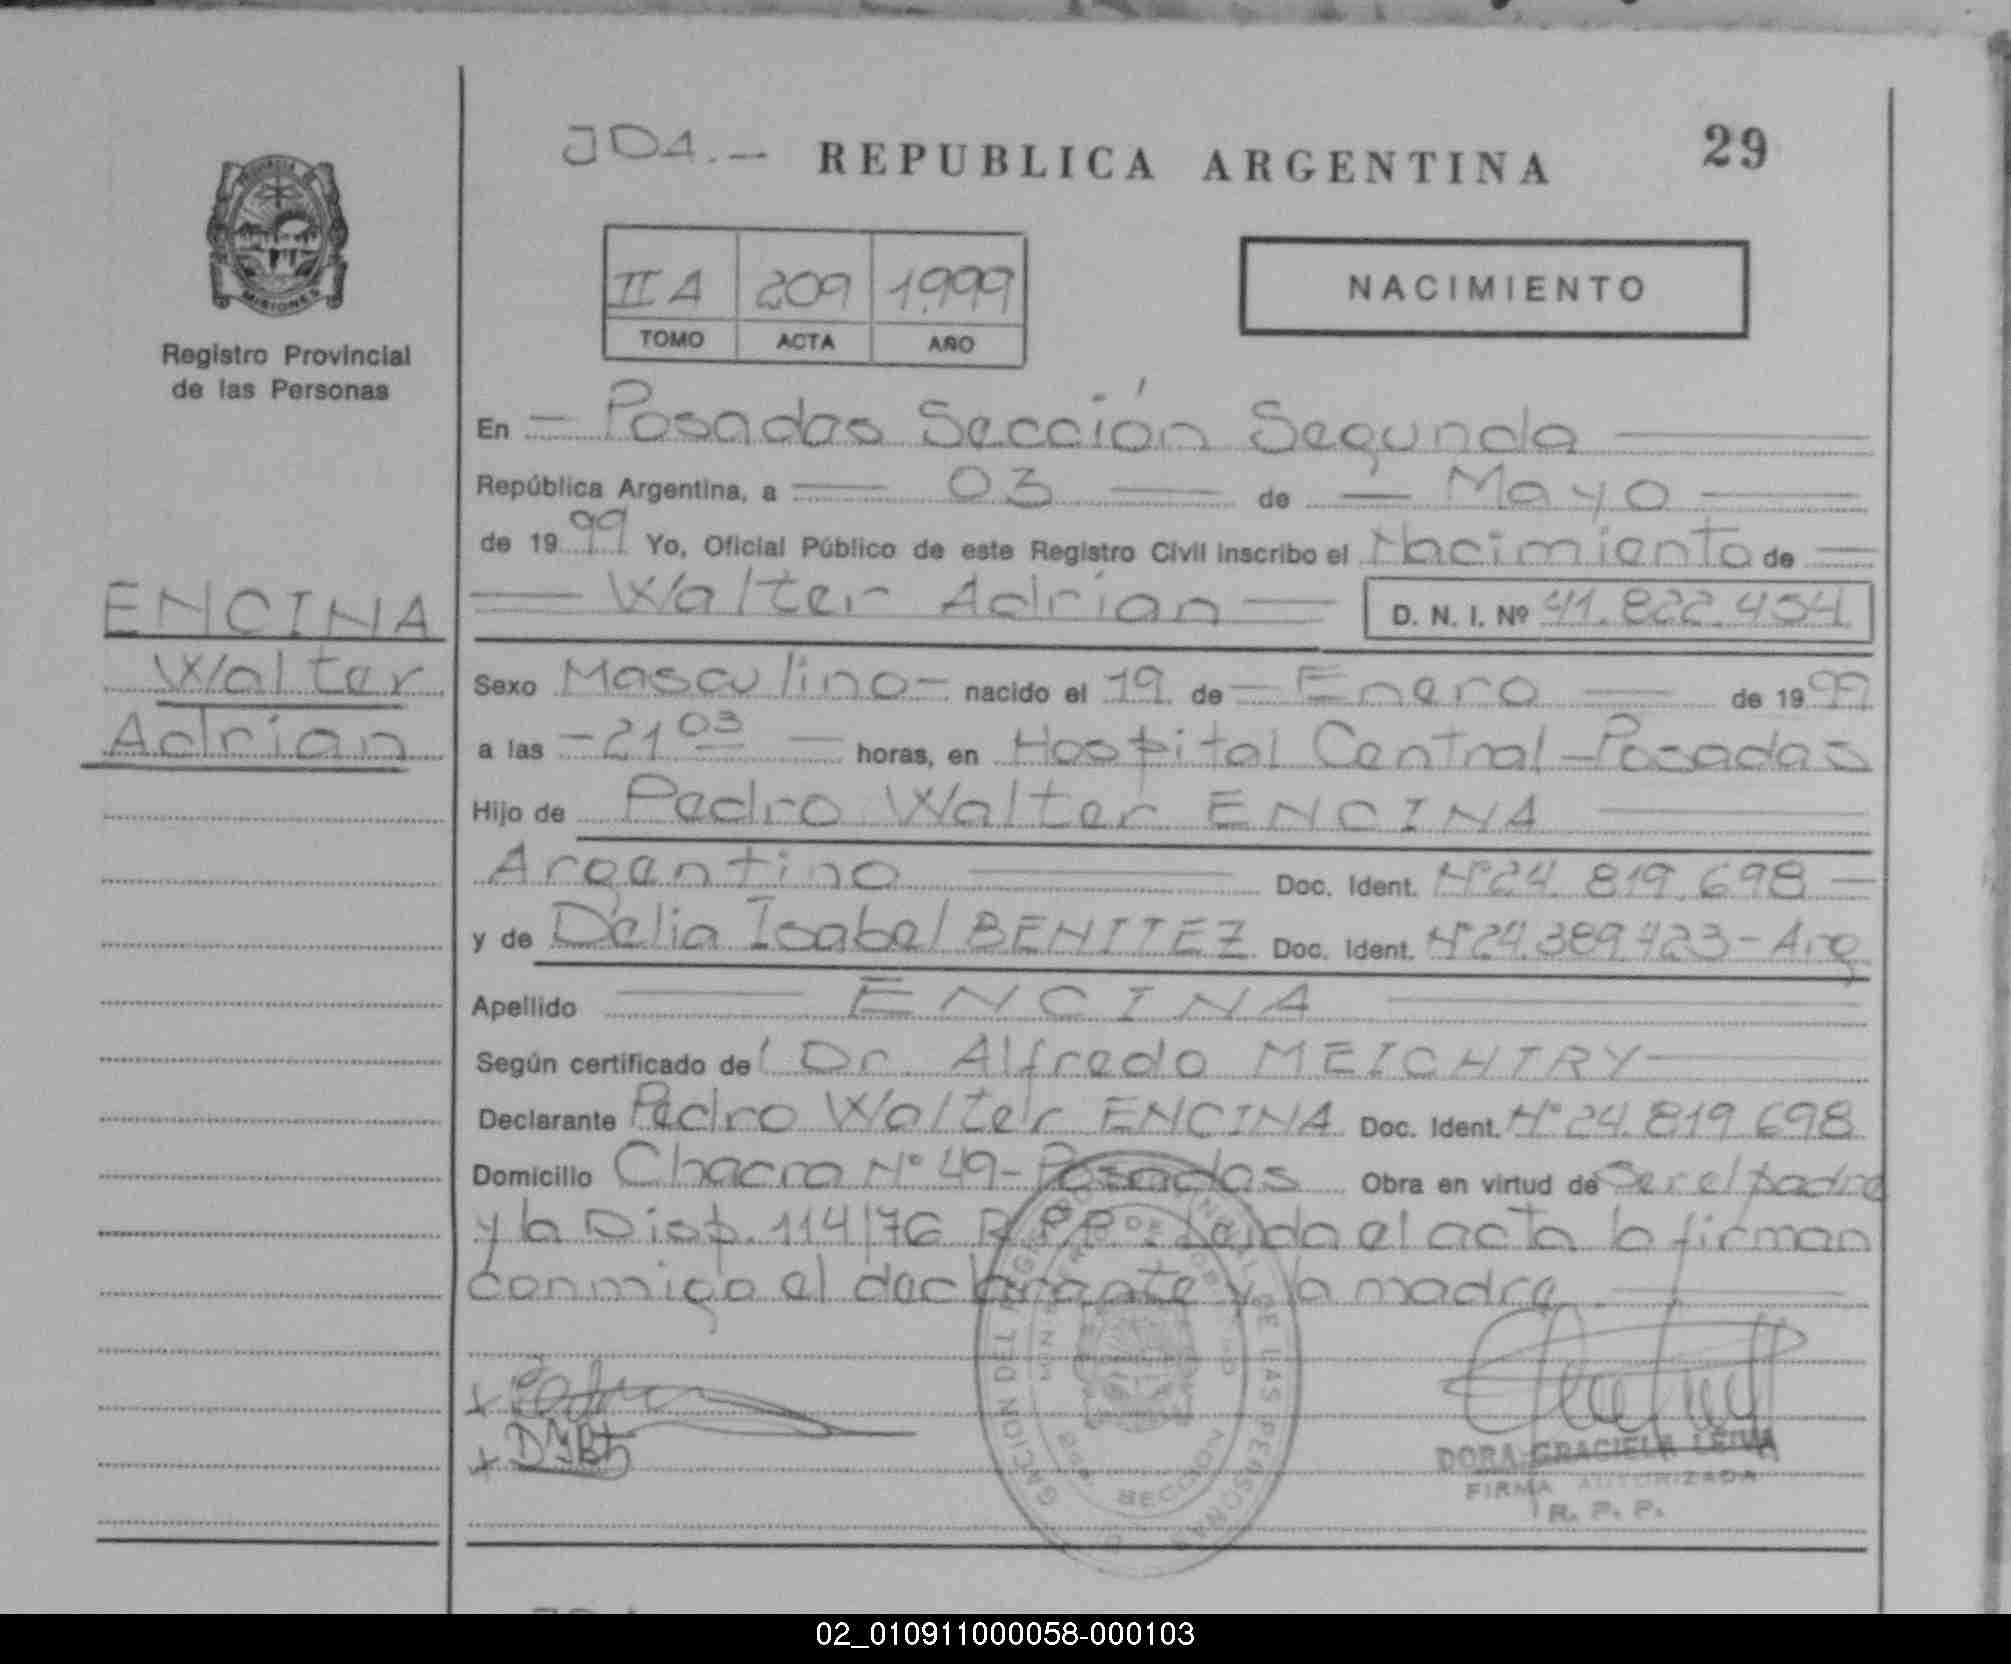 JDA.- REPUBLICA ARGENTINA 29
PROVINCIA
MISIONES
Registro Provincial
de las Personas
II A 209 1999
TOMO ACTA AÑO
NACIMIENTO
En - Posadas Sección Segunda
República Argentina, a 03 de Mayo
de 1999 Yo, Oficial Público de este Registro Civil inscribo el Nacimiento de
ENCINA
Walter
Adrian
Walter Adrian D. N. I. Nº 41.822.454
Sexo Masculino- nacido el 19 de Enero de 1999
a las -21 03 horas, en Hospital Central-Posadas
Hijo de Pedro Walter ENCINA
Argentino Doc. Ident. Nº24.819.698
y de Delia Isabel BENITEZ Doc. Ident. Nº24.389.423-Arg
Apellido ENCINA
Según certificado de Dr. Alfredo MEICHTRY
Declarante Pedro Walter ENCINA Doc. Ident. Nº 24.819.698
Domicilio Chacra Nº 49-Posadas Obra en virtud de Ser el padre
y la Disp. 114/76 R.P.P.- Leida el acta la firman
conmigo el declarante y la madre
DORA GRACIELA LEIVA
FIRMA AUTORIZADA
R. P. P.
02_010911000058-000103